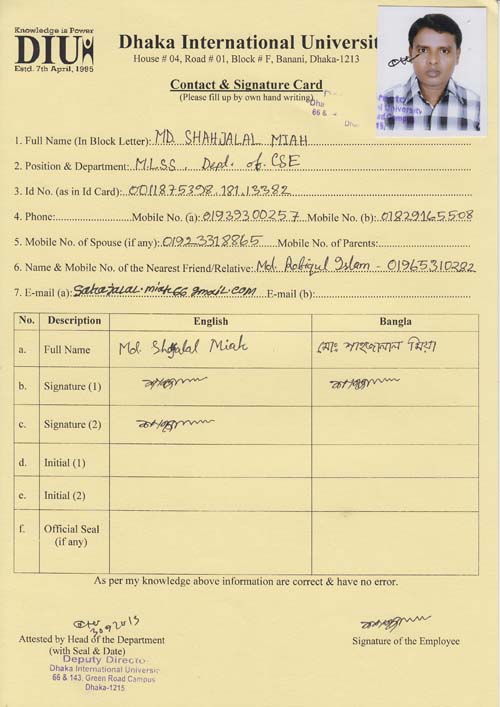 Knowledge is Power
DIU
Estd. 7th April, 1995
Dhaka International Universit
House # 04, Road # 01, Block # F, Banani, Dhaka-1213
Contact & Signature Card
(Please fill up by own hand writing)
1. Full Name (In Block Letter): MD. SHAHJALAL MIAH
2. Position & Department: M.L.SS, Dept. of CSE
3. Id No. (as in Id Card): 0011875398.181.13382
4. Phone: Mobile No. (a): 01939300257 Mobile No. (b): 01829165508
5. Mobile No. of Spouse (if any): 01923318865 Mobile No. of Parents:
6. Name & Mobile No. of the Nearest Friend/Relative: Md. Robiqul Islam - 01965310282
7. E-mail (a): gmail.com E-mail (b):
No. Description English Bangla
a. Full Name Md. Shajalal Miah মোঃ শাহজালাল মিয়া
b. Signature (1)
c. Signature (2)
d. Initial (1)
e. Initial (2)
f. Official Seal
(if any)
As per my knowledge above information are correct & have no error.
Attested by Head of the Department
(with Seal & Date)
Signature of the Employee
Deputy Directo
Dhaka International Universit
66 & 143, Green Road Campus
Dhaka-1215.